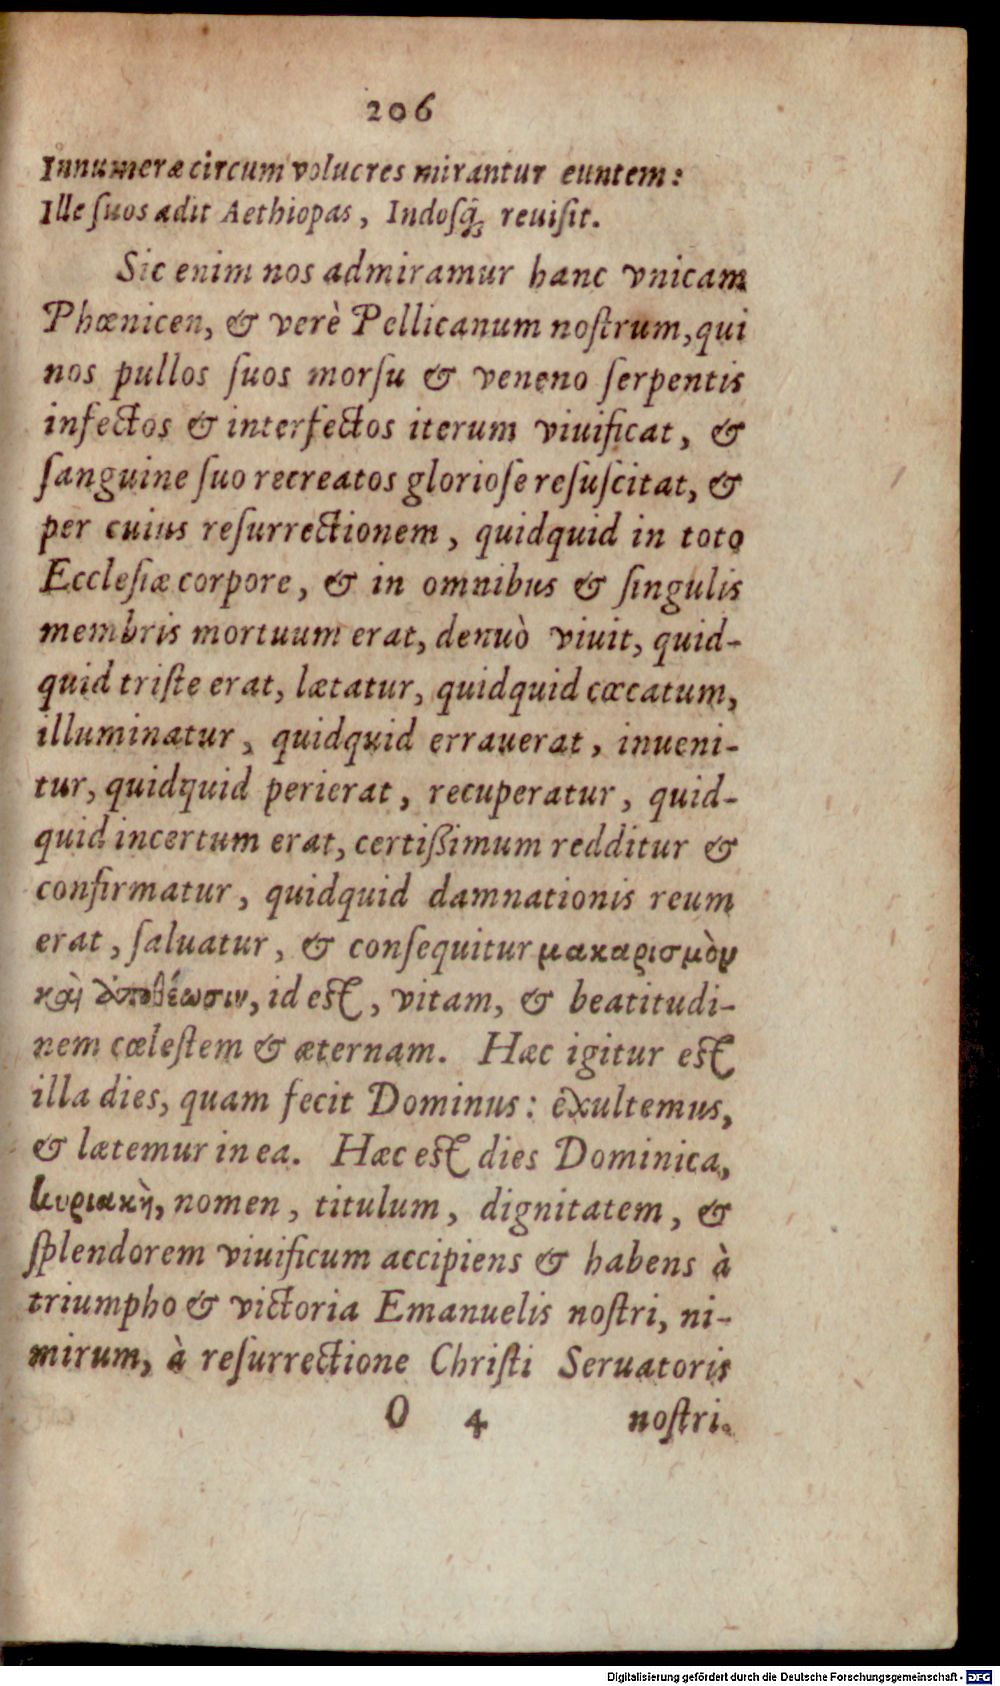 206
Innumeræ circum volucres mirantur euntem:
Ille ſuos adit Aethiopas, Indoſq́ꝫ reuiſit.
Sic enim nos admiramur hanc vnicam
Phœnicen, & verè Pellicanum noſtrum, qui
nos pullos ſuos morſu & veneno ſerpentis
infectos & interfectos iterum viuificat, &
ſanguine ſuo recreatos glorioſe reſuſcitat, &
per cuius reſurrectionem, quidquid in toto
Eccleſiæ corpore, & in omnibus & ſingulis
membris mortuum erat, denuò viuit, quid-
quid triſte erat, lætatur, quidquid cœcatum,
illuminatur, quidquid errauerat, inueni-
tur, quidquid perierat, recuperatur, quid-
quid incertum erat, certißimum redditur &
confirmatur, quidquid damnationis reum
erat, ſaluatur, & conſequitur μακαρισμὸν
καὶ ἀποθέωσιν, id eſt, vitam, & beatitudi-
nem cœleſtem & æternam. Hæc igitur eſt
illa dies, quam fecit Dominus: exultemus,
& lætemur in ea. Hæc eſt dies Dominica,
κυριακὴ, nomen, titulum, dignitatem, &
ſplendorem viuificum accipiens & habens à
triumpho & victoria Emanuelis noſtri, ni-
mirum, à reſurrectione Chriſti Seruatoris
O 4 noſtri.
Digitalisierung gefördert durch die Deutsche Forschungsgemeinschaft - DFG